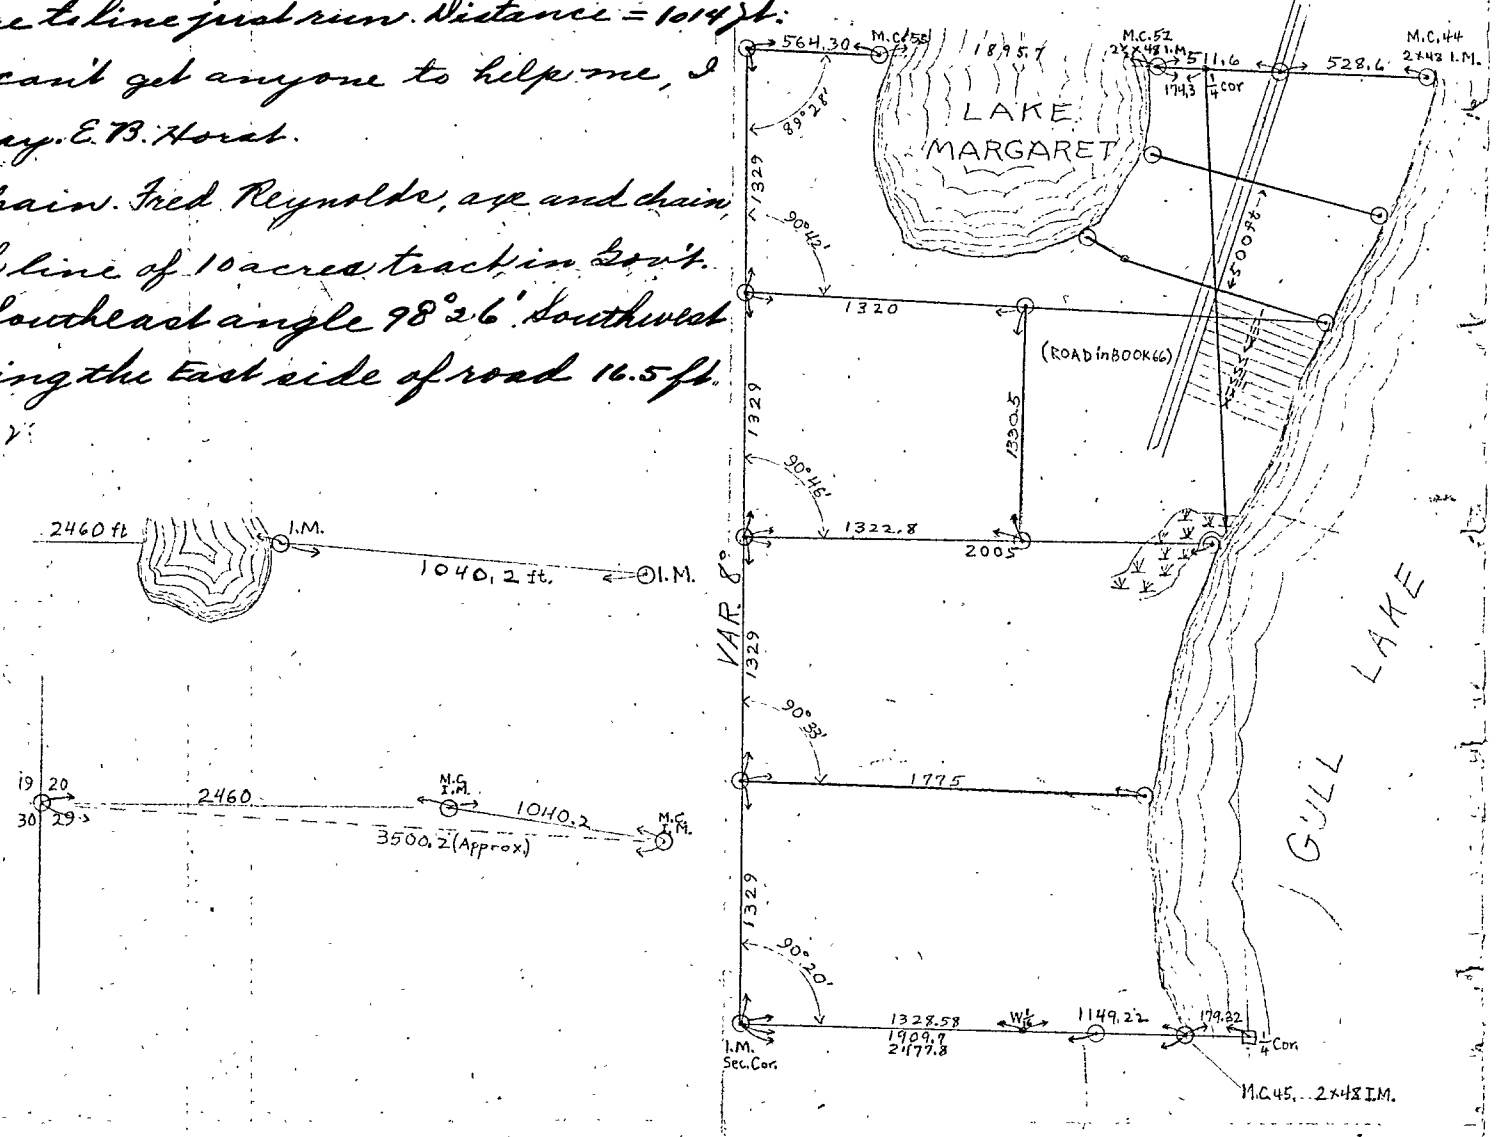 re to line just run. Distance = 1014 ft.
can't get anyone to help me, I
ay. E. B. Horst.
hain. Fred Reynolds, axe and chain,
line of 10 acres tract in Gov't.
Southeast angle 98°26'. Southwest
ing the East side of road 16.5 ft.
2460 ft
I.M.
1040.2 ft.
I.M.
19 20
30 29
2460
M.C.
I.M.
1040.2
M.C.
I.M.
3500.2 (Approx.)
564.30
M.C. 55
1895.7
M.C. 52
2×48 I.M.
511.6
174.3
1/4 COR
528.6
M.C. 44
2×48 I.M.
89°28'
LAKE
MARGARET
1329
90°42'
500 ft
1320
(ROAD in BOOK 66)
1329
1330.5
90°46'
1322.8
2005
VAR. 8°
1329
GULL LAKE
90°33'
1775
1329
90°20'
1328.58
1909.7
2177.8
W 1/16
1149.22
179.32
1/4 Cor.
I.M.
Sec. Cor.
M.C. 45. 2×48 I.M.